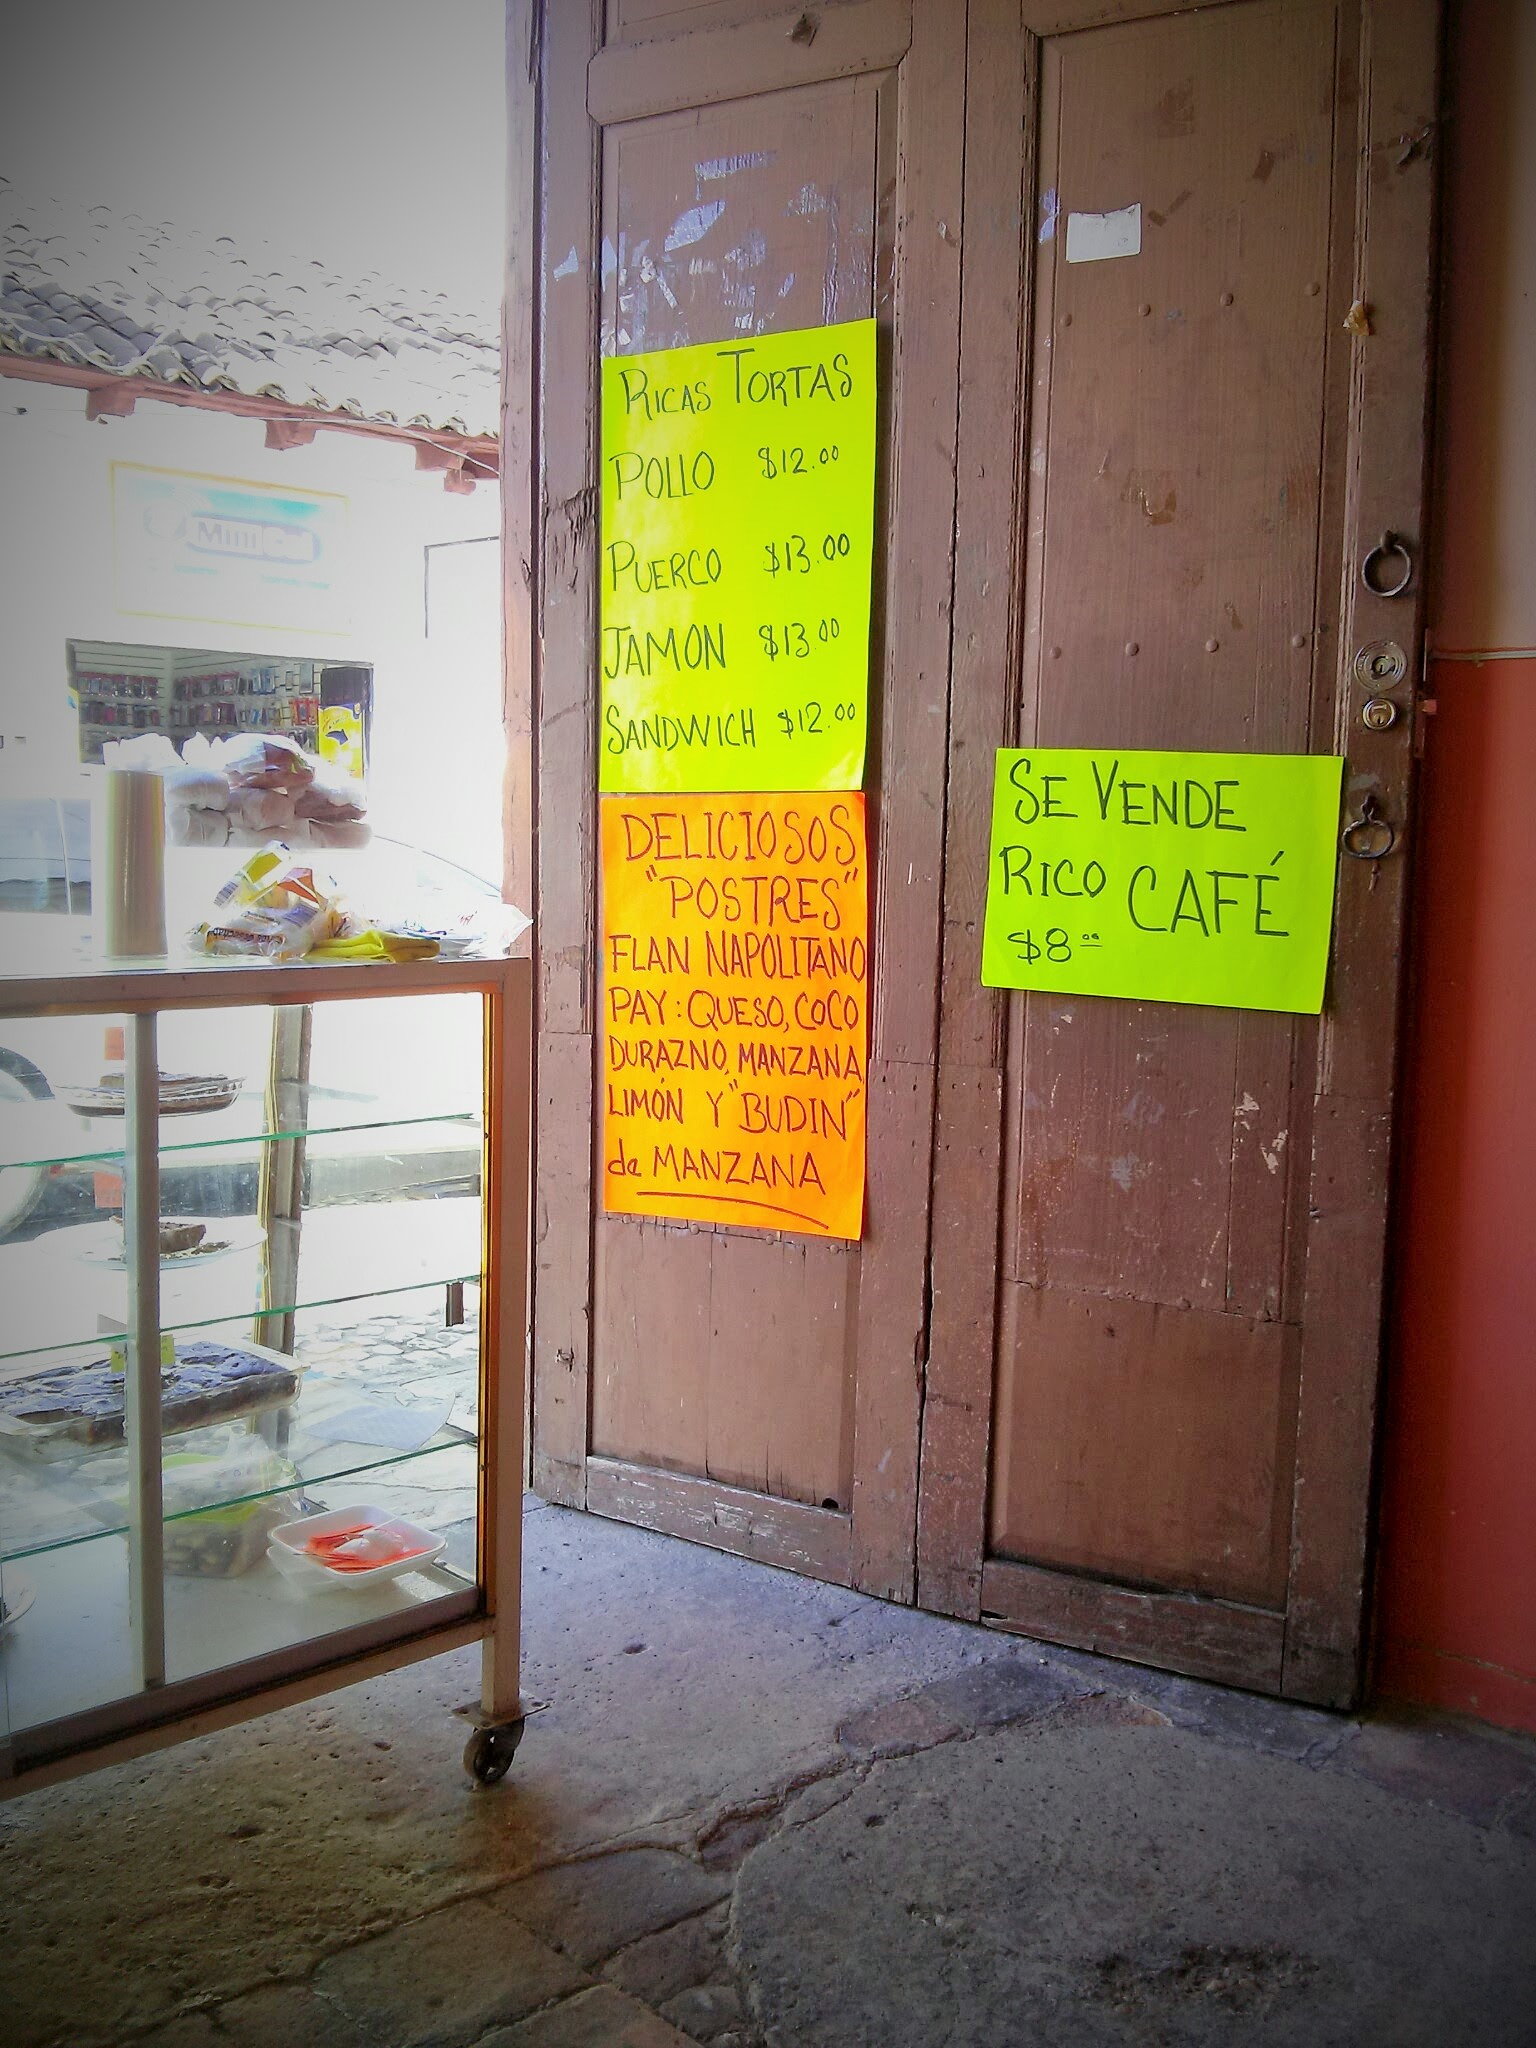 Mini
RICAS TORTAS
POLLO $12.00
PUERCO $13.00
JAMON $13.00
SANDWICH $12.00
DELICIOSOS
"POSTRES"
FLAN NAPOLITANO
PAY: QUESO, COCO
DURAZNO, MANZANA,
LIMÓN Y "BUDIN"
de MANZANA
SE VENDE
RICO CAFÉ
$8.00